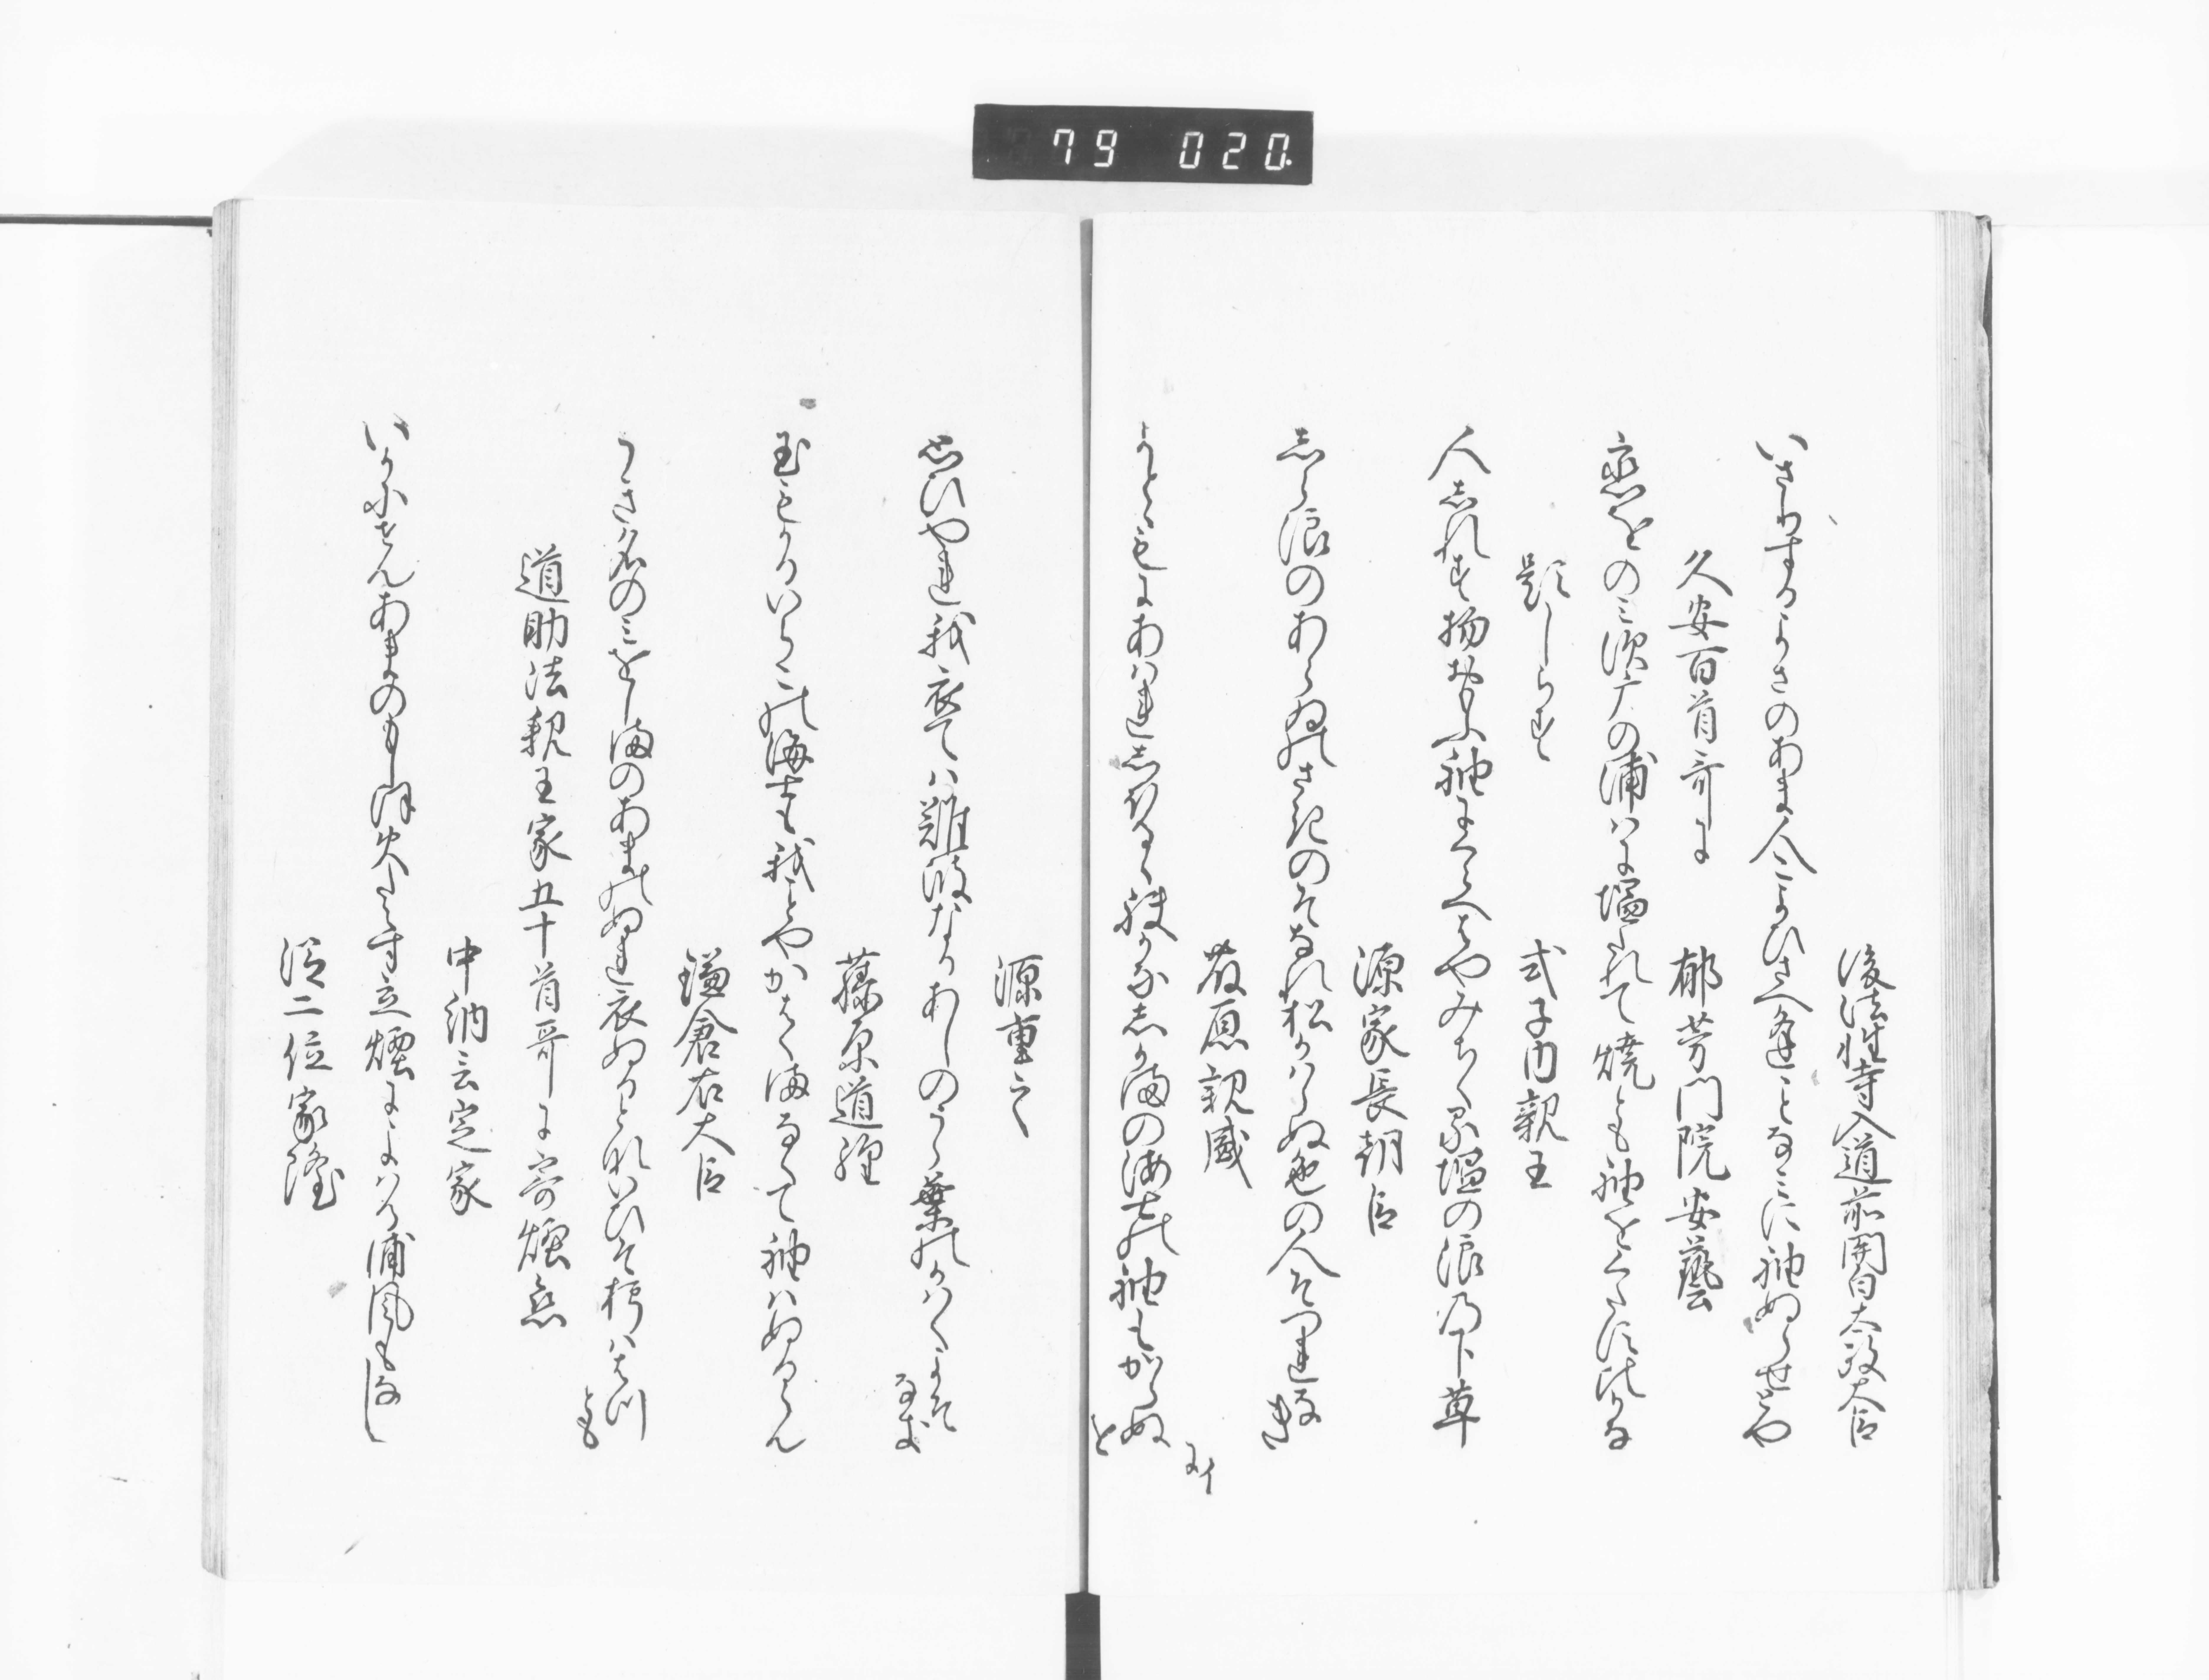 79 020
後法性寺入道前関白太政大臣
いさりするよさのあま人こよひさへ逢ことなみに袖ぬらせとや
久安百首哥に
郁芳門院安藝
恋をのみ須广の浦人に塩たれて焼とも袖をくたす比かな
題しらす
式子内親王
人しれす物おもふ袖にくらへはやみちくる塩の浪乃下草
源家長朝臣
しら浪のあらゐのさきのそなれ松かはらぬ色の人そつれな
き
藤原親盛
よとゝもにあはれしほるゝ袂かなしかまの海士の袖もかはらぬ
と
にイ
源重之
思ひやれ我衣ては難波なるあしのうら葉のかはくよそ
なき
藤原道経
玉もかるいらこの海士も我ことやかはくまなくて袖はぬるらん
鎌倉右大臣
うき名のみをしまのあまのぬれ衣ぬるとないひそ朽ははつ
とも
道助法親王家五十首哥に寄煙恋
中納言定家
いかにせんあまのもしほ火たえす立煙によはる浦風もなし
従二位家隆